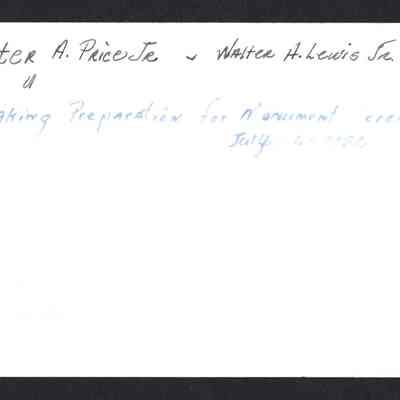 ter A. Price Jr. & Walter H. Lewis Jr.
"
aking Preparation for Monument
July